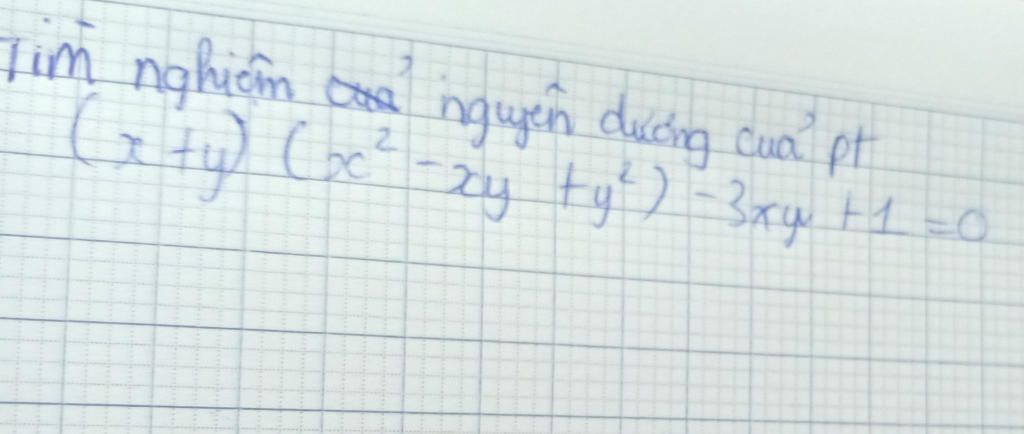 Tìm nghiệm nguyên dương của pt
(x + y) (x² - xy + y²) - 3xy + 1 = 0